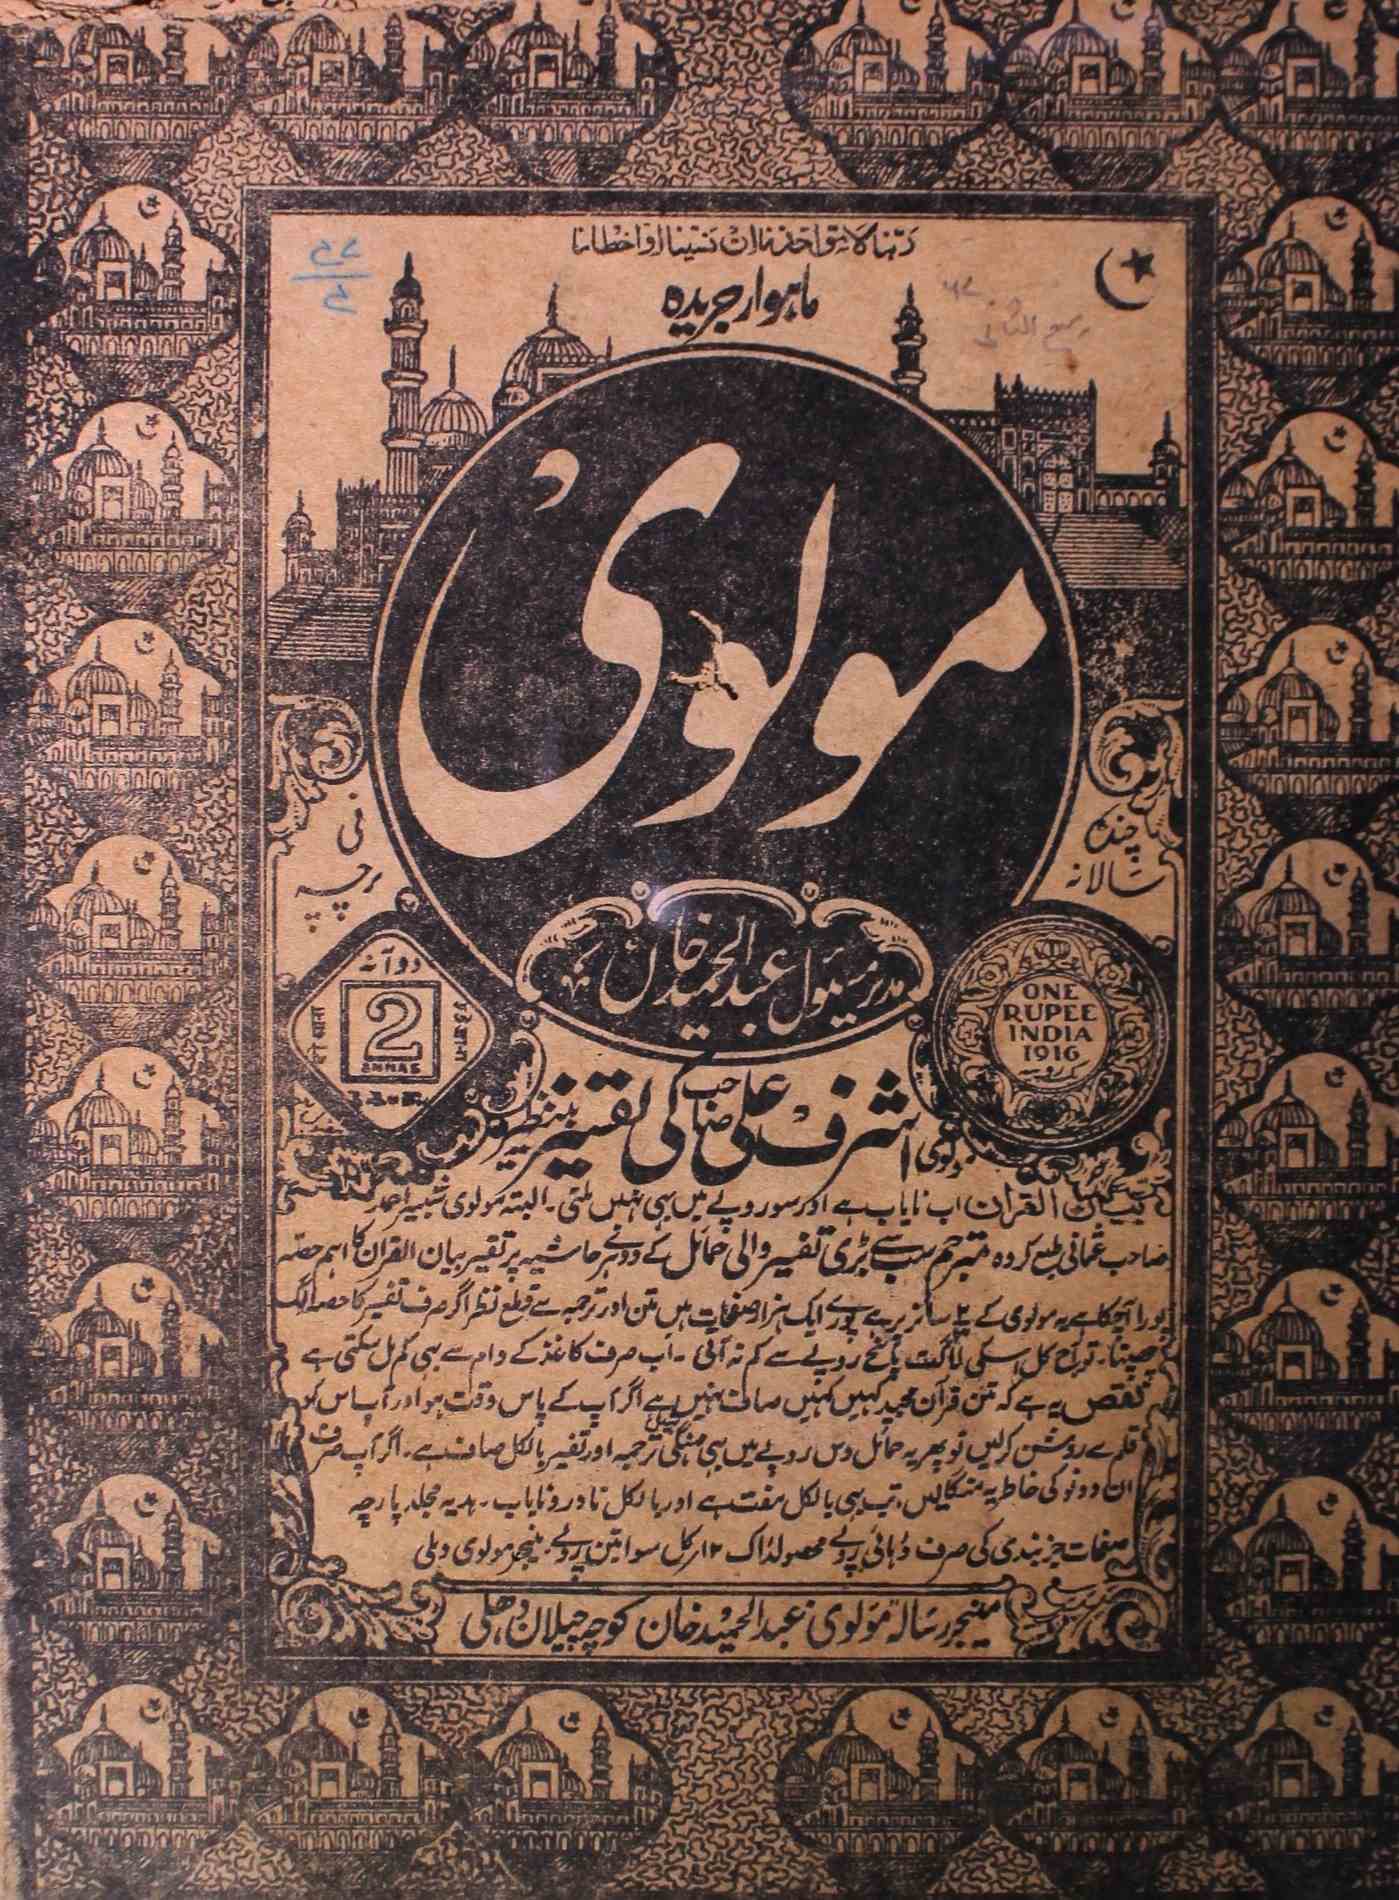 ربنا لا تواخذنا ان نسینا او اخطانا
ماہوار جریدہ
مولوی
فی پرچہ
چندہ سالانہ
مدیر مسئول عبدالحمید خاں
دو آنہ
2
ANNAS
ONE
RUPEE
INDIA
1916
مولوی اشرف علی صاحب کی تفسیر بینظیر
بیان القران اب نایاب ہے اور سو روپے میں بہی نہیں ملتی۔ البتہ مولوی شبیر احمد
صاحب عثمانی طبع کردہ مترجم سب سے بڑی تفسیر والی حمائل کے دونے حاشیہ پر تفسیر بیان القران کا اہم حصہ
پورا آچکا ہے یہ مولوی کے سائز پر ہے پورے ایک ہزار صفحات ہیں متن اور ترجمہ سے قطع نظر اگر صرف تفسیر کا حصہ الگ
چھپتا۔ تو آج کل اسکی لاگت پانچ روپے سے کم نہ آتی۔ اب صرف کاغذ کے دام سے بہی کم مل سکتی ہے
نقص یہ ہے کہ متن قرآن مجید کہیں کہیں صاف نہیں ہے اگر آپ کے پاس وقت ہو اور آپ اس کو
قلم سے روشن کرلیں تو پھر یہ حمائل دس روپے میں بہی مہنگی نہیں ترجمہ اور تفسیر بالکل صاف ہے۔ اگر آپ صرف
ان دونو کی خاطر یہ منگالیں، تب بہی بالکل مفت ہے اور بالکل نادر و نایاب۔ ہدیہ مجلد پارچہ
صفحات جزبندی کی صرف ڈہائی روپے محصولڈاک ۱۲ر کل سوا تین روپے۔ منیجر مولوی دہلی
مینیجر رسالہ مولوی عبدالحمید خان کوچہ چیلان دھلی